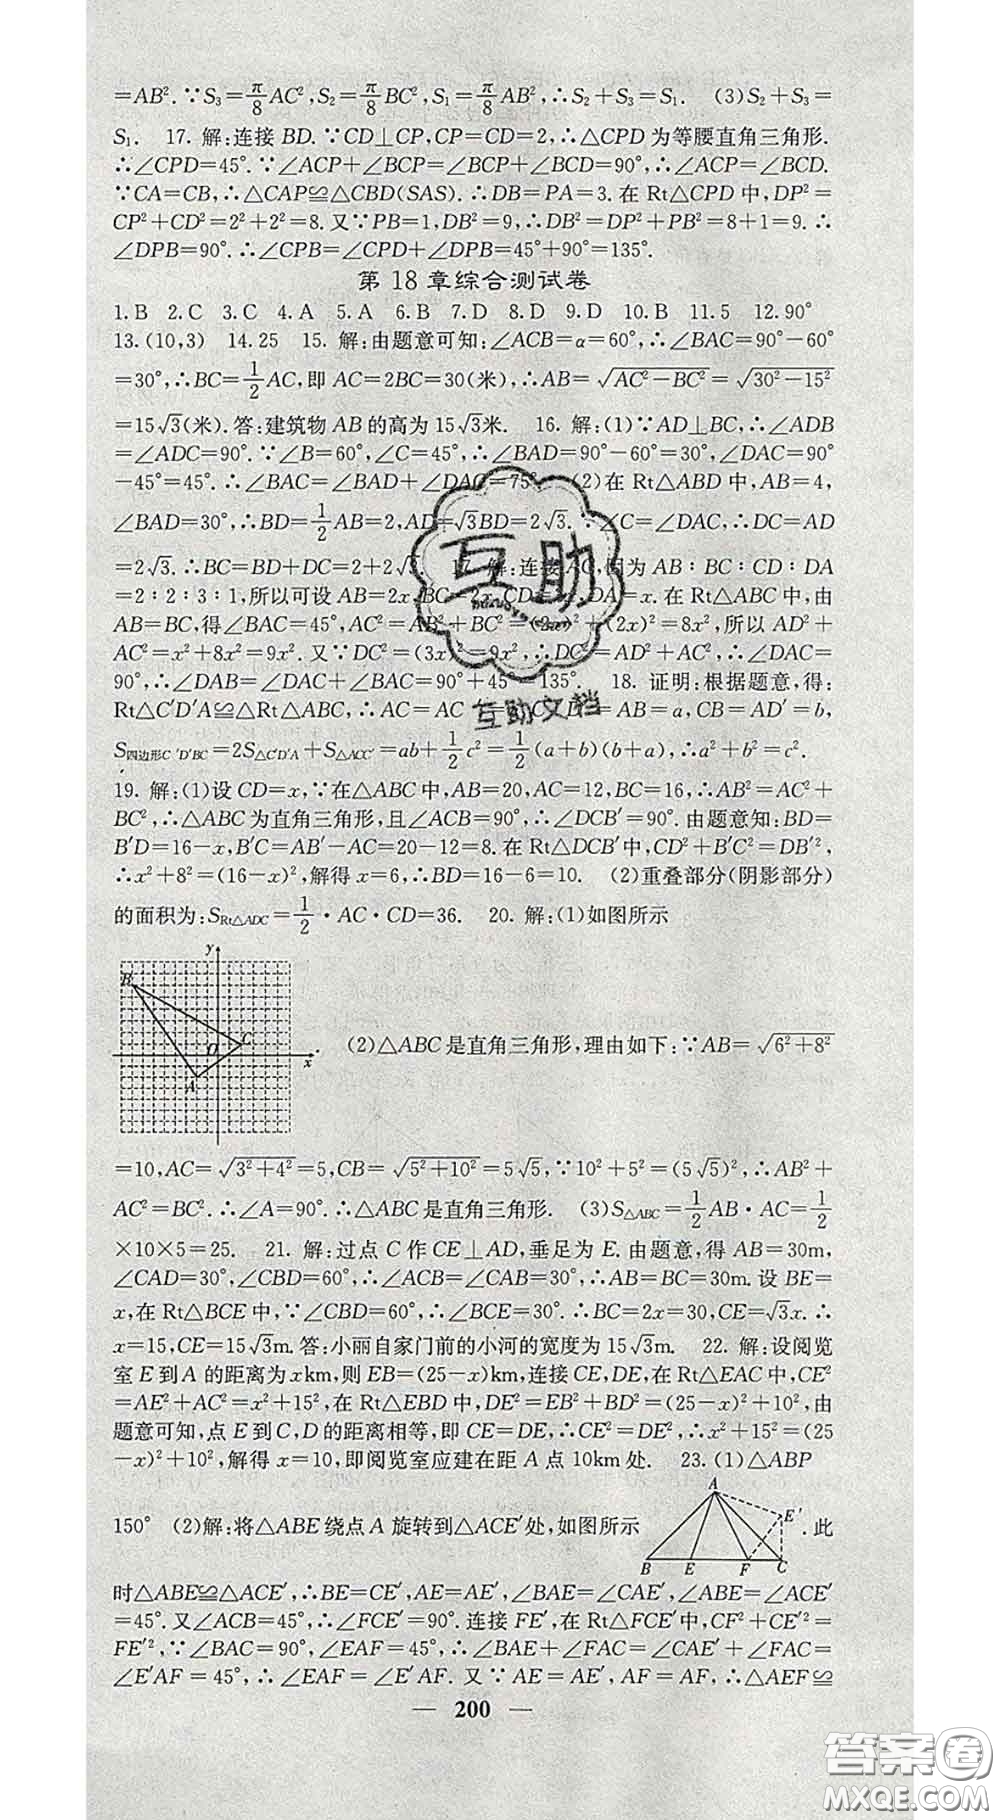 =AB². ∵S₃=π/8 AC², S₂=π/8 BC², S₁=π/8 AB², ∴S₂+S₃=S₁. (3)S₂+S₃=
S₁. 17. 解:连接 BD. ∵CD⊥CP, CP=CD=2, ∴△CPD 为等腰直角三角形.
∴∠CPD=45°. ∵∠ACP+∠BCP=∠BCP+∠BCD=90°, ∴∠ACP=∠BCD.
∵CA=CB, ∴△CAP≌△CBD(SAS). ∴DB=PA=3. 在 Rt△CPD 中, DP²=
CP²+CD²=2²+2²=8. 又∵PB=1, DB²=9, ∴DB²=DP²+PB²=8+1=9. ∴
∠DPB=90°. ∴∠CPB=∠CPD+∠DPB=45°+90°=135°.
第 18 章综合测试卷
1. B 2. C 3. C 4. A 5. A 6. B 7. D 8. D 9. D 10. B 11. 5 12. 90°
13. (10,3) 14. 25 15. 解:由题意可知:∠ACB=α=60°, ∴∠BAC=90°-60°
=30°, ∴BC=1/2 AC, 即 AC=2BC=30(米), ∴AB=√(AC²-BC²)=√(30²-15²)
=15√3(米). 答:建筑物 AB 的高为 15√3米. 16. 解:(1)∵AD⊥BC, ∴∠ADB
=∠ADC=90°. ∵∠B=60°, ∠C=45°, ∴∠BAD=90°-60°=30°, ∠DAC=90°
-45°=45°. ∴∠BAC=∠BAD+∠DAC=75°. (2)在 Rt△ABD 中, AB=4,
∠BAD=30°, ∴BD=1/2 AB=2, AD=√3BD=2√3. ∵∠C=∠DAC, ∴DC=AD
=2√3. ∴BC=BD+DC=2+2√3. 17. 解:连接 AC, 因为 AB∶BC∶CD∶DA
=2∶2∶3∶1, 所以可设 AB=2x, BC=2x, CD=3x, DA=x. 在 Rt△ABC 中, 由
AB=BC, 得∠BAC=45°, AC²=AB²+BC²=(2x)²+(2x)²=8x², 所以 AD²+
AC²=x²+8x²=9x². 又∵DC²=(3x)²=9x², ∴DC²=AD²+AC², ∴∠DAC=
90°, ∴∠DAB=∠DAC+∠BAC=90°+45°=135°. 18. 证明:根据题意,得:
Rt△C′D′A≌△Rt△ABC, ∴AC=AC′=c, C′D′=AB=a, CB=AD′=b,
S四边形C′D′BC=2S△C′D′A+S△ACC′=ab+1/2 c²=1/2(a+b)(b+a), ∴a²+b²=c².
19. 解:(1)设 CD=x, ∵在△ABC 中, AB=20, AC=12, BC=16, ∴AB²=AC²+
BC², ∴△ABC 为直角三角形, 且∠ACB=90°, ∴∠DCB′=90°. 由题意知: BD=
B′D=16-x, B′C=AB′-AC=20-12=8. 在 Rt△DCB′中, CD²+B′C²=DB′²,
∴x²+8²=(16-x)², 解得 x=6, ∴BD=16-6=10. (2)重叠部分(阴影部分)
的面积为: SRt△ADC=1/2·AC·CD=36. 20. 解:(1)如图所示
y B O C A x
. (2)△ABC 是直角三角形, 理由如下: ∵AB=√(6²+8²)
=10, AC=√(3²+4²)=5, CB=√(5²+10²)=5√5, ∵10²+5²=(5√5)², ∴AB²+
AC²=BC². ∴∠A=90°. ∴△ABC 是直角三角形. (3)S△ABC=1/2 AB·AC=1/2
×10×5=25. 21. 解:过点 C 作 CE⊥AD, 垂足为 E. 由题意, 得 AB=30m,
∠CAD=30°, ∠CBD=60°, ∴∠ACB=∠CAB=30°, ∴AB=BC=30m. 设 BE=
x, 在 Rt△BCE 中, ∵∠CBD=60°, ∴∠BCE=30°. ∴BC=2x=30, CE=√3x. ∴
x=15, CE=15√3m. 答:小丽自家门前的小河的宽度为 15√3m. 22. 解:设阅览
室 E 到 A 的距离为 xkm, 则 EB=(25-x)km, 连接 CE, DE, 在 Rt△EAC 中, CE²
=AE²+AC²=x²+15², 在 Rt△EBD 中, DE²=EB²+BD²=(25-x)²+10², 由
题意可知, 点 E 到 C, D 的距离相等, 即 CE=DE, ∴CE²=DE², ∴x²+15²=(25
-x)²+10², 解得 x=10, 即阅览室应建在距 A 点 10km 处. 23. (1)△ABP
150° (2)解:将△ABE 绕点 A 旋转到△ACE′处, 如图所示
A E′ B E F C
. 此
时△ABE≌△ACE′, ∴BE=CE′, AE=AE′, ∠BAE=∠CAE′, ∠ABE=∠ACE′
=45°. 又∠ACB=45°, ∴∠FCE′=90°. 连接 FE′, 在 Rt△FCE′中, CF²+CE′²=
FE′², ∵∠BAC=90°, ∠EAF=45°, ∴∠BAE+∠FAC=∠CAE′+∠FAC=
∠E′AF=45°, ∴∠EAF=∠E′AF. 又∵AE=AE′, AF=AF, ∴△AEF≌
— 200 —
互助
互助文档
答案圈
MXQE.COM